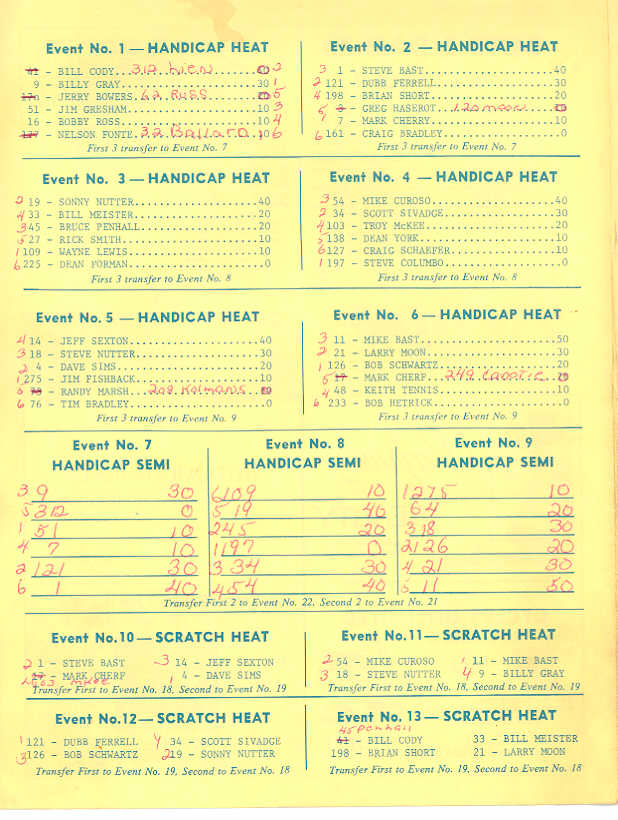 Event No. 1 — HANDICAP HEAT
41 - BILL CODY...312 Lien.......0 2
9 - BILLY GRAY......................30 1
JERRY BOWERS 62 Russ 5
51 - JIM GRESHAM...................10 3
16 - BOBBY ROSS....................10 4
127 - NELSON FONTE. 32 Ballard .10 6
First 3 transfer to Event No. 7
Event No. 2 — HANDICAP HEAT
3 1 - STEVE BAST....................40
2 121 - DUBB FERRELL..................30
4 198 - BRIAN SHORT...................20
5 GREG HASEROT
1 7 - MARK CHERRY...................10
6 161 - CRAIG BRADLEY.................0
First 3 transfer to Event No. 7
Event No. 3 — HANDICAP HEAT
2 19 - SONNY NUTTER....................40
4 33 - BILL MEISTER....................20
3 45 - BRUCE PENHALL...................20
5 27 - RICK SMITH......................10
1 109 - WAYNE LEWIS.....................10
6 225 - DEAN FORMAN.....................0
First 3 transfer to Event No. 8
Event No. 4 — HANDICAP HEAT
3 54 - MIKE CUROSO....................40
2 34 - SCOTT SIVADGE..................30
4 103 - TROY McKEE.....................20
5 138 - DEAN YORK......................10
6 127 - CRAIG SCHAEFER.................10
1 197 - STEVE COLUMBO..................0
First 3 transfer to Event No. 8
Event No. 5 — HANDICAP HEAT
4 14 - JEFF SEXTON.....................40
3 18 - STEVE NUTTER....................30
2 4 - DAVE SIMS.......................20
1 275 - JIM FISHBACK....................10
5 RANDY MARSH.. 209
6 76 - TIM BRADLEY.....................0
First 3 transfer to Event No. 9
Event No. 6 — HANDICAP HEAT
3 11 - MIKE BAST......................50
2 21 - LARRY MOON.....................30
1 126 - BOB SCHWARTZ...................20
5 17 - MARK CHERF.. 249
4 48 - KEITH TENNIS...................10
6 233 - BOB HETRICK....................0
First 3 transfer to Event No. 9
Event No. 7
HANDICAP SEMI
3 9 30
5 312 0
1 51 10
4 7 10
2 121 30
6 1 40
Event No. 8
HANDICAP SEMI
6 109 10
5 19 40
2 45 20
1 197 0
3 34 30
4 54 40
Event No. 9
HANDICAP SEMI
1 275 10
6 4 20
3 18 30
2 126 20
4 21 30
5 11 50
Transfer First 2 to Event No. 22, Second 2 to Event No. 21
Event No.10 — SCRATCH HEAT
2 1 - STEVE BAST 3 14 - JEFF SEXTON
17 - MARK CHERF 1 4 - DAVE SIMS
Transfer First to Event No. 18, Second to Event No. 19
Event No.11 — SCRATCH HEAT
2 54 - MIKE CUROSO 1 11 - MIKE BAST
3 18 - STEVE NUTTER 4 9 - BILLY GRAY
Transfer First to Event No. 18, Second to Event No. 19
Event No.12 — SCRATCH HEAT
1 121 - DUBB FERRELL 4 34 - SCOTT SIVADGE
3 126 - BOB SCHWARTZ 2 19 - SONNY NUTTER
Transfer First to Event No. 19, Second to Event No. 18
Event No. 13 — SCRATCH HEAT
45 Penhall
41 - BILL CODY 33 - BILL MEISTER
198 - BRIAN SHORT 21 - LARRY MOON
Transfer First to Event No. 19, Second to Event No. 18